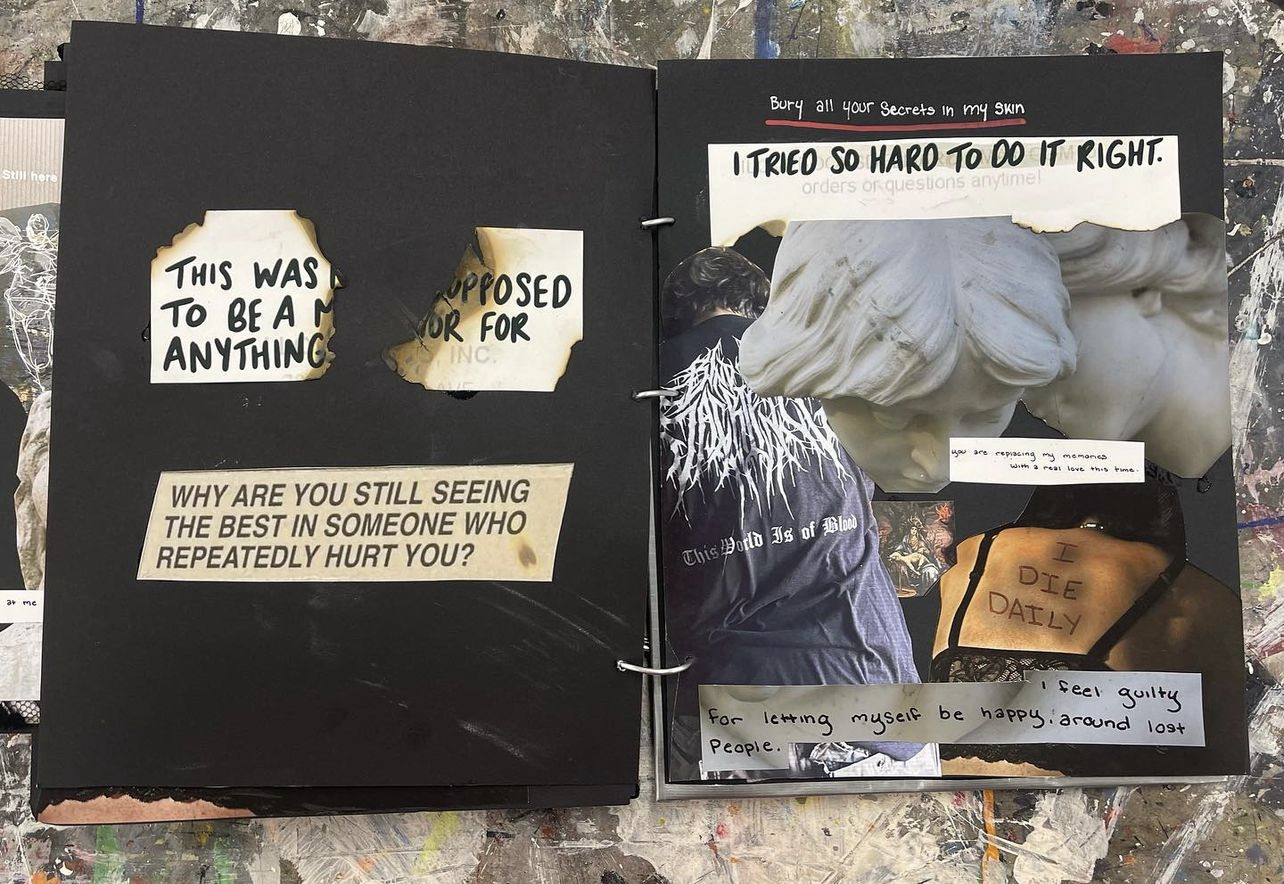 Still here
at me
THIS WAS
TO BE A M
ANYTHING
SUPPOSED
OUR FOR
INC.
WHY ARE YOU STILL SEEING
THE BEST IN SOMEONE WHO
REPEATEDLY HURT YOU?
Bury all your secrets in my skin
I TRIED SO HARD TO DO IT RIGHT.
orders or questions anytime!
This World Is of Blood
you are replacing my memories
with a real love this time.
I
DIE
DAILY
i feel guilty
for letting myself be happy around lost
People.